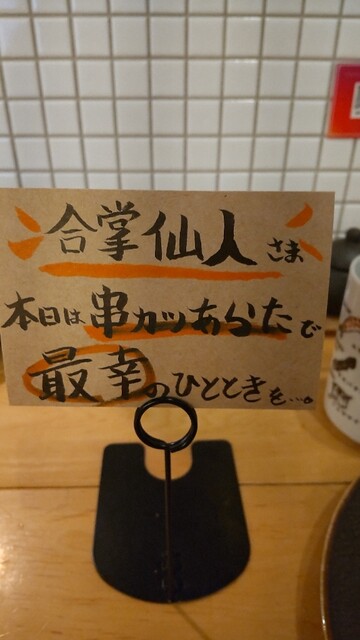 合掌仙人さま
本日は串カツあらたで
最幸のひとときを…。